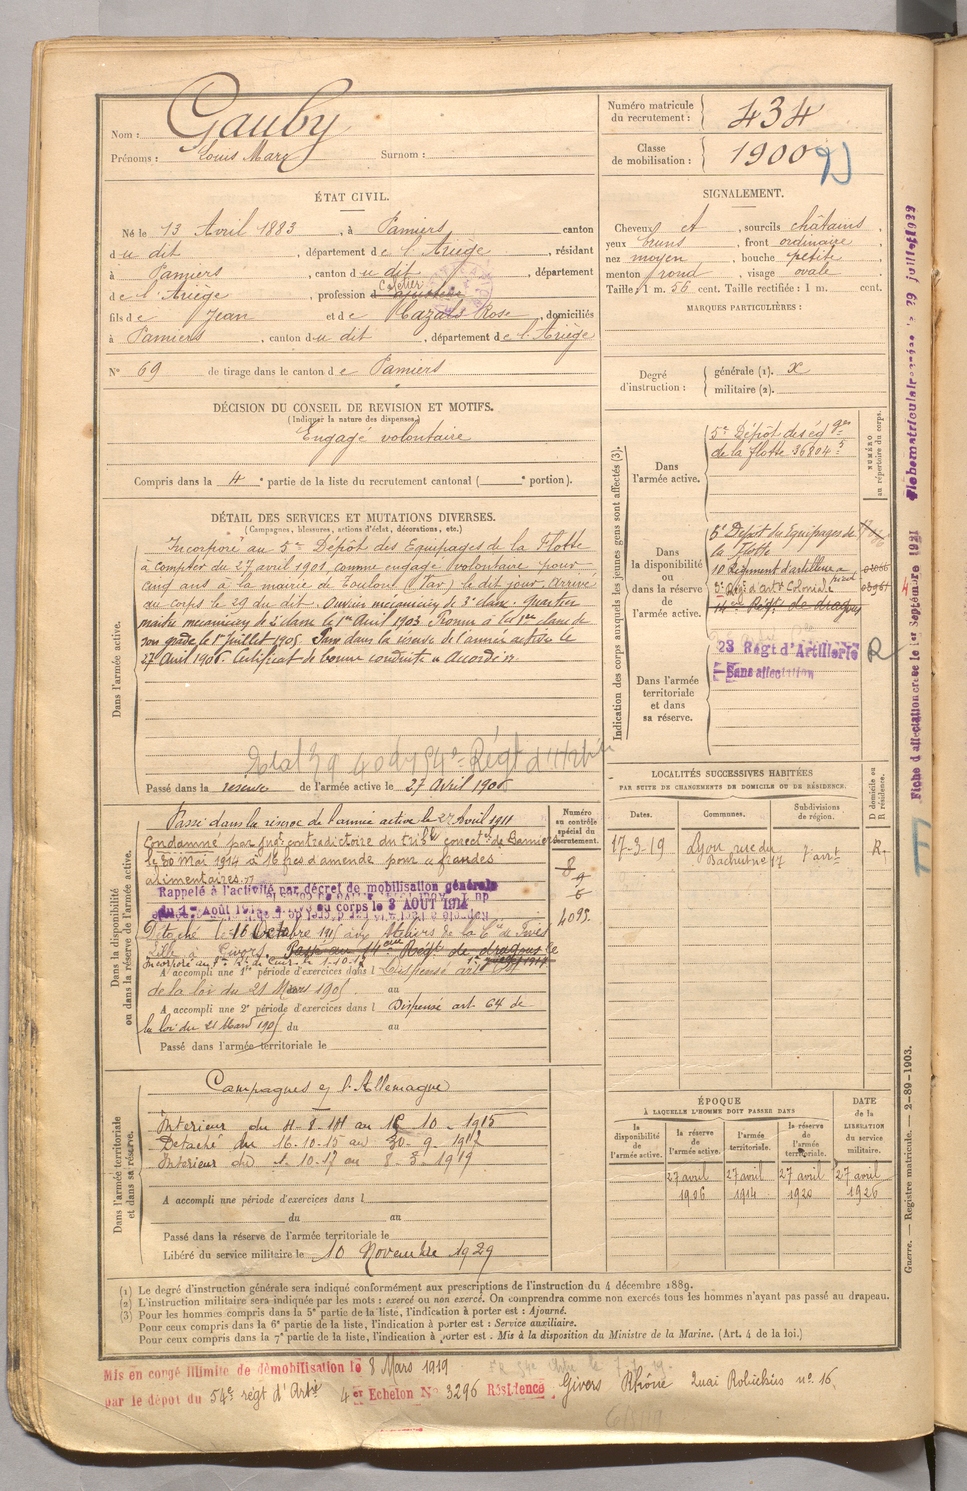 Nom : Gauby
Prénoms : Louis Marc Surnom :
Numéro matricule du recrutement : 434
Classe de mobilisation : 1900
ÉTAT CIVIL.
Né le 13 Avril 1883, à Pamiers canton
du dit, département de l'Ariège, résidant
à Pamiers, canton du dit, département
de l'Ariège, profession d
fils de Jean et de Cazals Rose, domiciliés
à Pamiers, canton du dit, département de l'Ariège
N° 69 de tirage dans le canton de Pamiers
SIGNALEMENT.
Cheveux et, sourcils châtains,
yeux bruns, front ordinaire,
nez moyen, bouche petite,
menton rond, visage ovale
Taille : 1 m. 56 cent. Taille rectifiée : 1 m. cent.
MARQUES PARTICULIÈRES :
Degré d'instruction : générale (1). x
militaire (2).
DÉCISION DU CONSEIL DE REVISION ET MOTIFS.
(Indiquer la nature des dispenses.)
Engagé volontaire
Compris dans la 4e partie de la liste du recrutement cantonal ( e portion).
DÉTAIL DES SERVICES ET MUTATIONS DIVERSES.
(Campagnes, blessures, actions d'éclat, décorations, etc.)
Dans l'armée active.
Incorporé au 5e Dépôt des Equipages de la Flotte
à compter du 27 avril 1901, comme engagé volontaire pour
cinq ans à la mairie de Toulon (Var) le dit jour. Arrivé
au corps le 29 du dit. Ouvrier mécanicien de 3e classe. Quartier
maître mécanicien de 2e classe le 1er Avril 1903. Promu à la 1ère classe de
son grade le 1er Juillet 1905. Passé dans la réserve de l'armée active le
27 Avril 1906. Certificat de bonne conduite "Accordé"
Passé dans la réserve de l'armée active le 27 Avril 1906
Indication des corps auxquels les jeunes gens sont affectés (3).
NUMÉRO au répertoire du corps.
Dans l'armée active.
5e Dépôt des éqges
de la flotte 36804 5
Dans la disponibilité ou dans la réserve de l'armée active.
5e Dépôt des Equipages de
la Flotte
10 Régiment d'artillerie à pied
3e Régt d'arte Coloniale
14ème Régt de dragons
Dans l'armée territoriale et dans sa réserve.
23 Régt d'Artillerie
Sans affectation
R
Dans la disponibilité ou dans la réserve de l'armée active.
Numéro au contrôle spécial du recrutement.
Passé dans la réserve de l'armée active le 27 Avril 1911
Condamné par jugt contradictoire du tribl correctel de
le 30 mai 1914 à 16 frcs d'amende pour fraudes
alimentaires.
Rappelé à l'activité par décret de mobilisation générale
du 1er Août 1914 au corps le 3 AOUT 1914
Détaché le 16 Octobre 1915 aux Ateliers de la Cie de Fives
Lille à Givors. Passé au 14ème Régt de dragons le
A accompli une 1re période d'exercices dans l Dispensé art
de la loi du 21 Mars 1905 au
A accompli une 2e période d'exercices dans l Dispensé art. 64 de
la loi du 21 Mars 1905 du au
Passé dans l'armée territoriale le
LOCALITÉS SUCCESSIVES HABITÉES
PAR SUITE DE CHANGEMENTS DE DOMICILE OU DE RÉSIDENCE.
Dates. Communes. Subdivisions de région. D domicile ou R résidence.
17-3-19 Lyon, rue du 7 arrt R.
Dans l'armée territoriale et dans sa réserve.
Campagnes c/ l'Allemagne
Intérieur du 4-8-14 au 15-10-1915
Détaché du 16-10-15 au 30-9-1917
Intérieur du 1-10-17 au 8-3-1919
A accompli une période d'exercices dans l
du au
Passé dans la réserve de l'armée territoriale le
Libéré du service militaire le 10 Novembre 1929
ÉPOQUE
À LAQUELLE L'HOMME DOIT PASSER DANS
la disponibilité de l'armée active. la réserve de l'armée active. l'armée territoriale. la réserve de l'armée territoriale.
DATE de la LIBÉRATION du service militaire.
27 avril 1906 27 avril 1914 27 avril 1920 27 avril 1926
(1) Le degré d'instruction générale sera indiqué conformément aux prescriptions de l'instruction du 4 décembre 1889.
(2) L'instruction militaire sera indiquée par les mots : exercé ou non exercé. On comprendra comme non exercés tous les hommes n'ayant pas passé au drapeau.
(3) Pour les hommes compris dans la 5e partie de la liste, l'indication à porter est : Ajourné.
Pour ceux compris dans la 6e partie de la liste, l'indication à porter est : Service auxiliaire.
Pour ceux compris dans la 7e partie de la liste, l'indication à porter est : Mis à la disposition du Ministre de la Marine. (Art. 4 de la loi.)
Mis en congé illimité de démobilisation le 8 Mars 1919
par le dépôt du 54e régt d'Artie 4er Echelon No 3296 Résidence Givors Rhône Quai No 16.
Guerre. — Registre matricule. — 2-89-1903.
Fiche d'affectation créée le 1er Septembre 1921